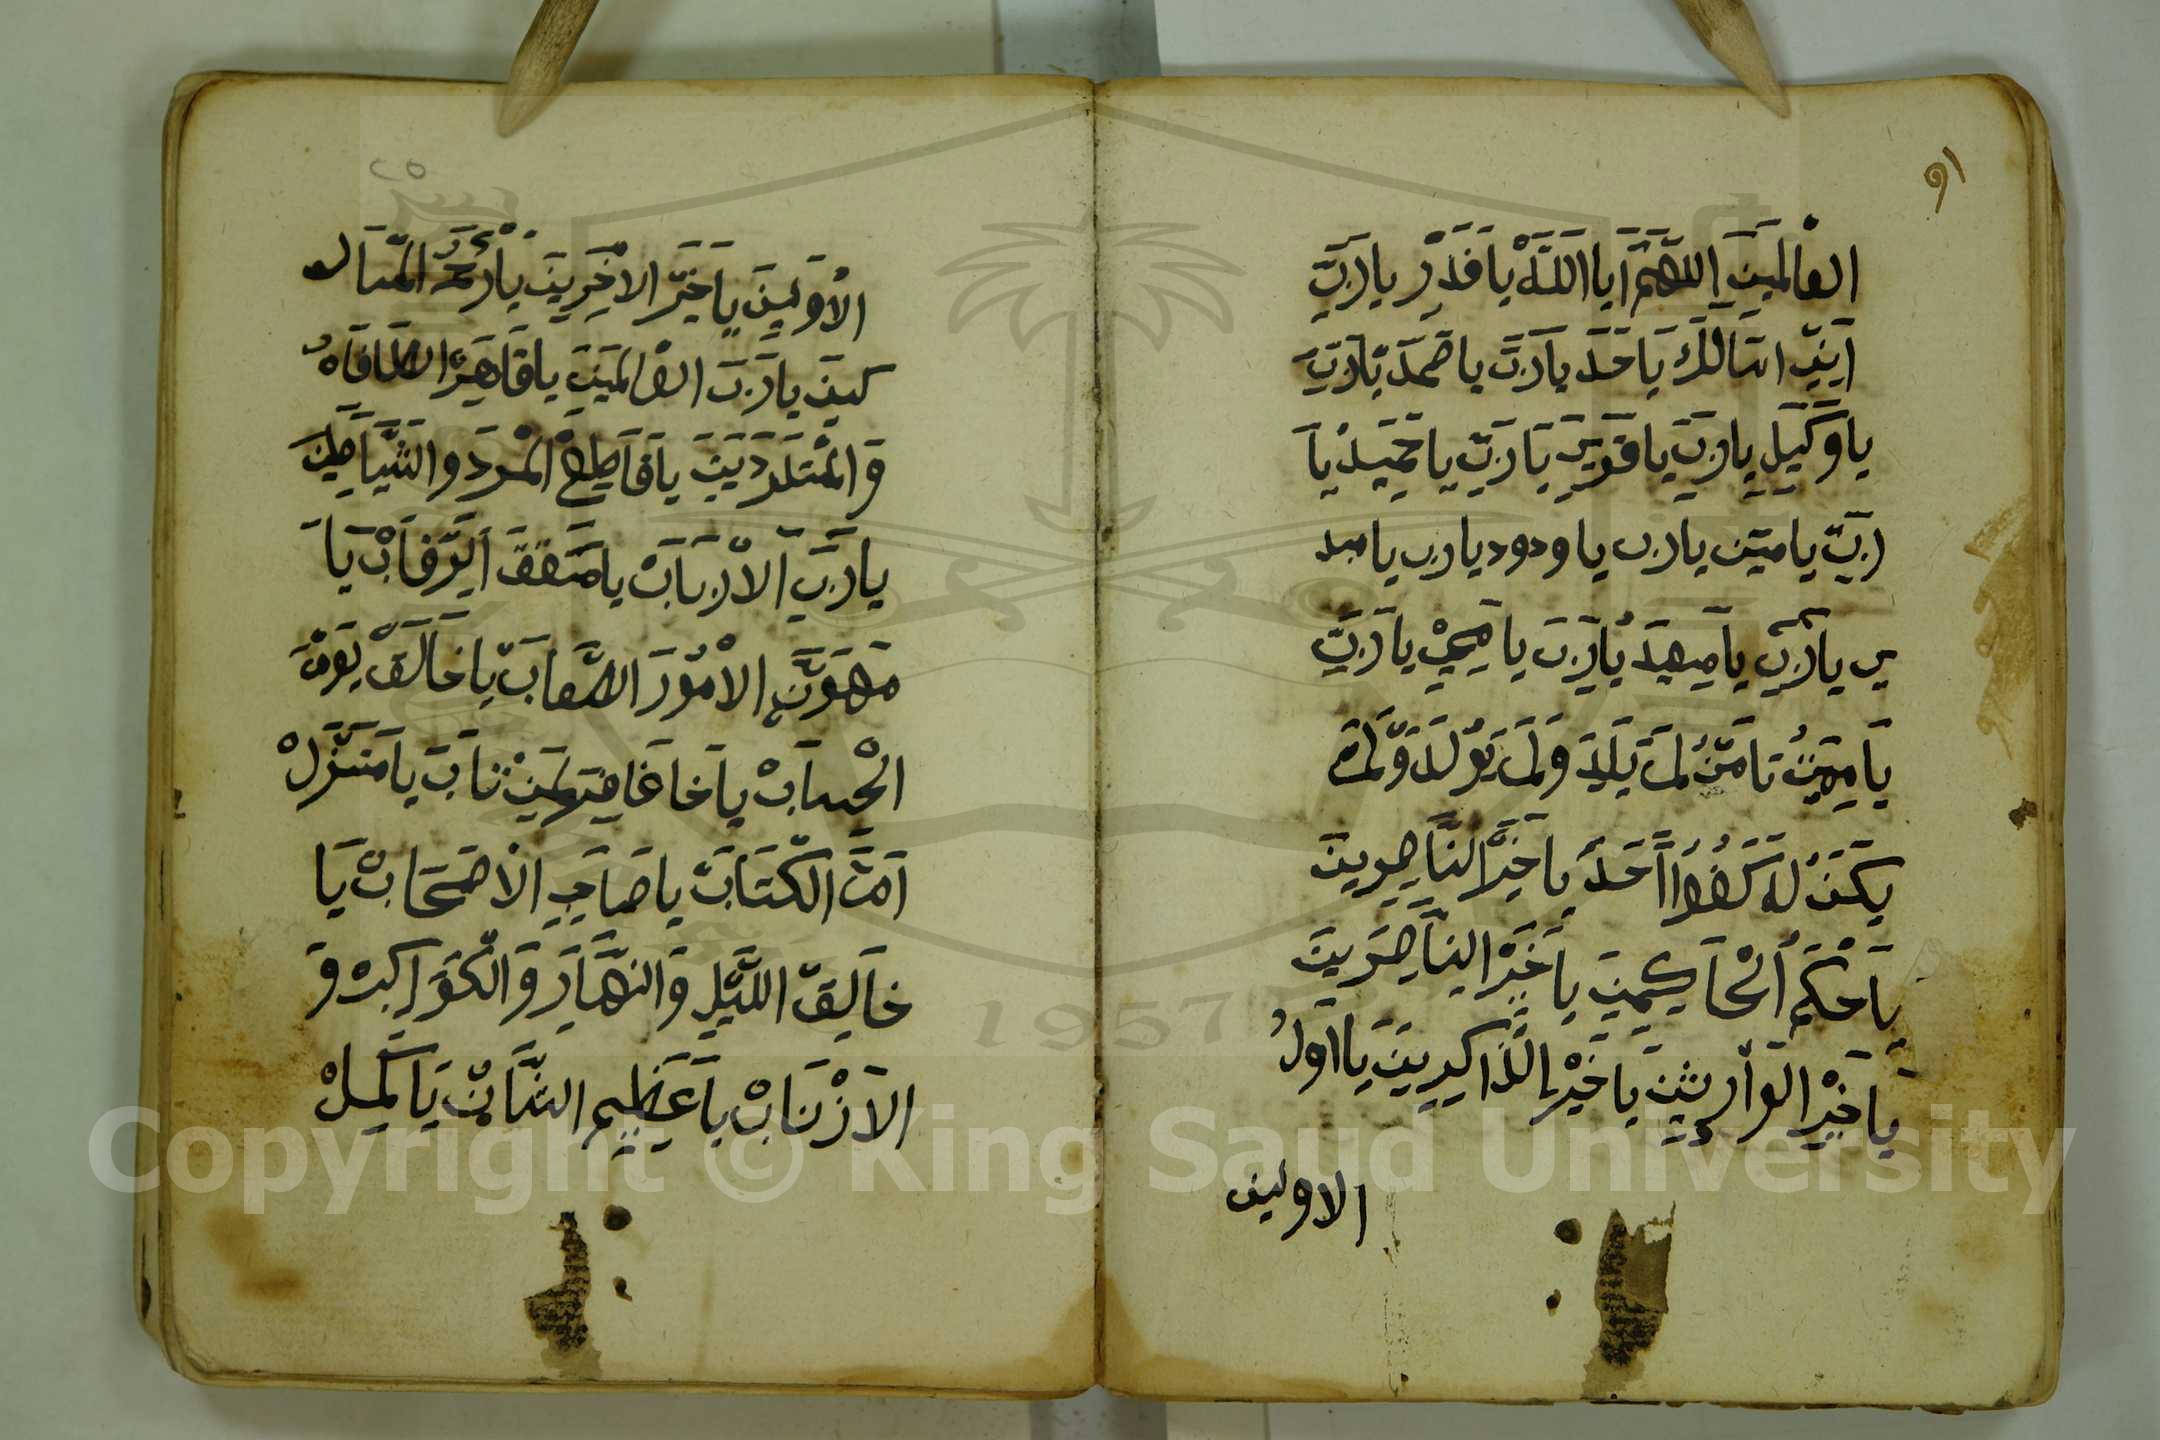 ٩١
العالمين اللهم ايا الله يا قدر يارب
ايني اسالك يا حد يارب يا صمد يارب
يا وكيل يارب يا قوي يارب يا حميد يا
رب يا متين يارب يا ودود يارب يا مبد
ي يارب يا مهيد يارب يا محي يارب
يا مميت يا من لم يلد ولم يولد ولم
يكن له كفوا احد يا خير الناصرين
يا حكم الحاكمين يا خير الناصرين
يا خير الوارثين يا خير الذاكرين يا اول
الاولين
٢٥
الاولين يا خير الاخرين يا ارحم المسا
كين يارب العالمين يا قاهر الطغاه
والمتمردين يا قاطع المرد والشياطين
يارب الارباب يا معتق الرقاب يا
مهون الامور الصعاب يا خالق يوم
الحساب يا خا غافر لمن تاب يا منزل
ام الكتاب يا صاحب الاصحاب يا
خالق الليل والنهار والكواكبه و
الازناب يا عظيم الشان يا كمل
Copyright © King Saud University
1957